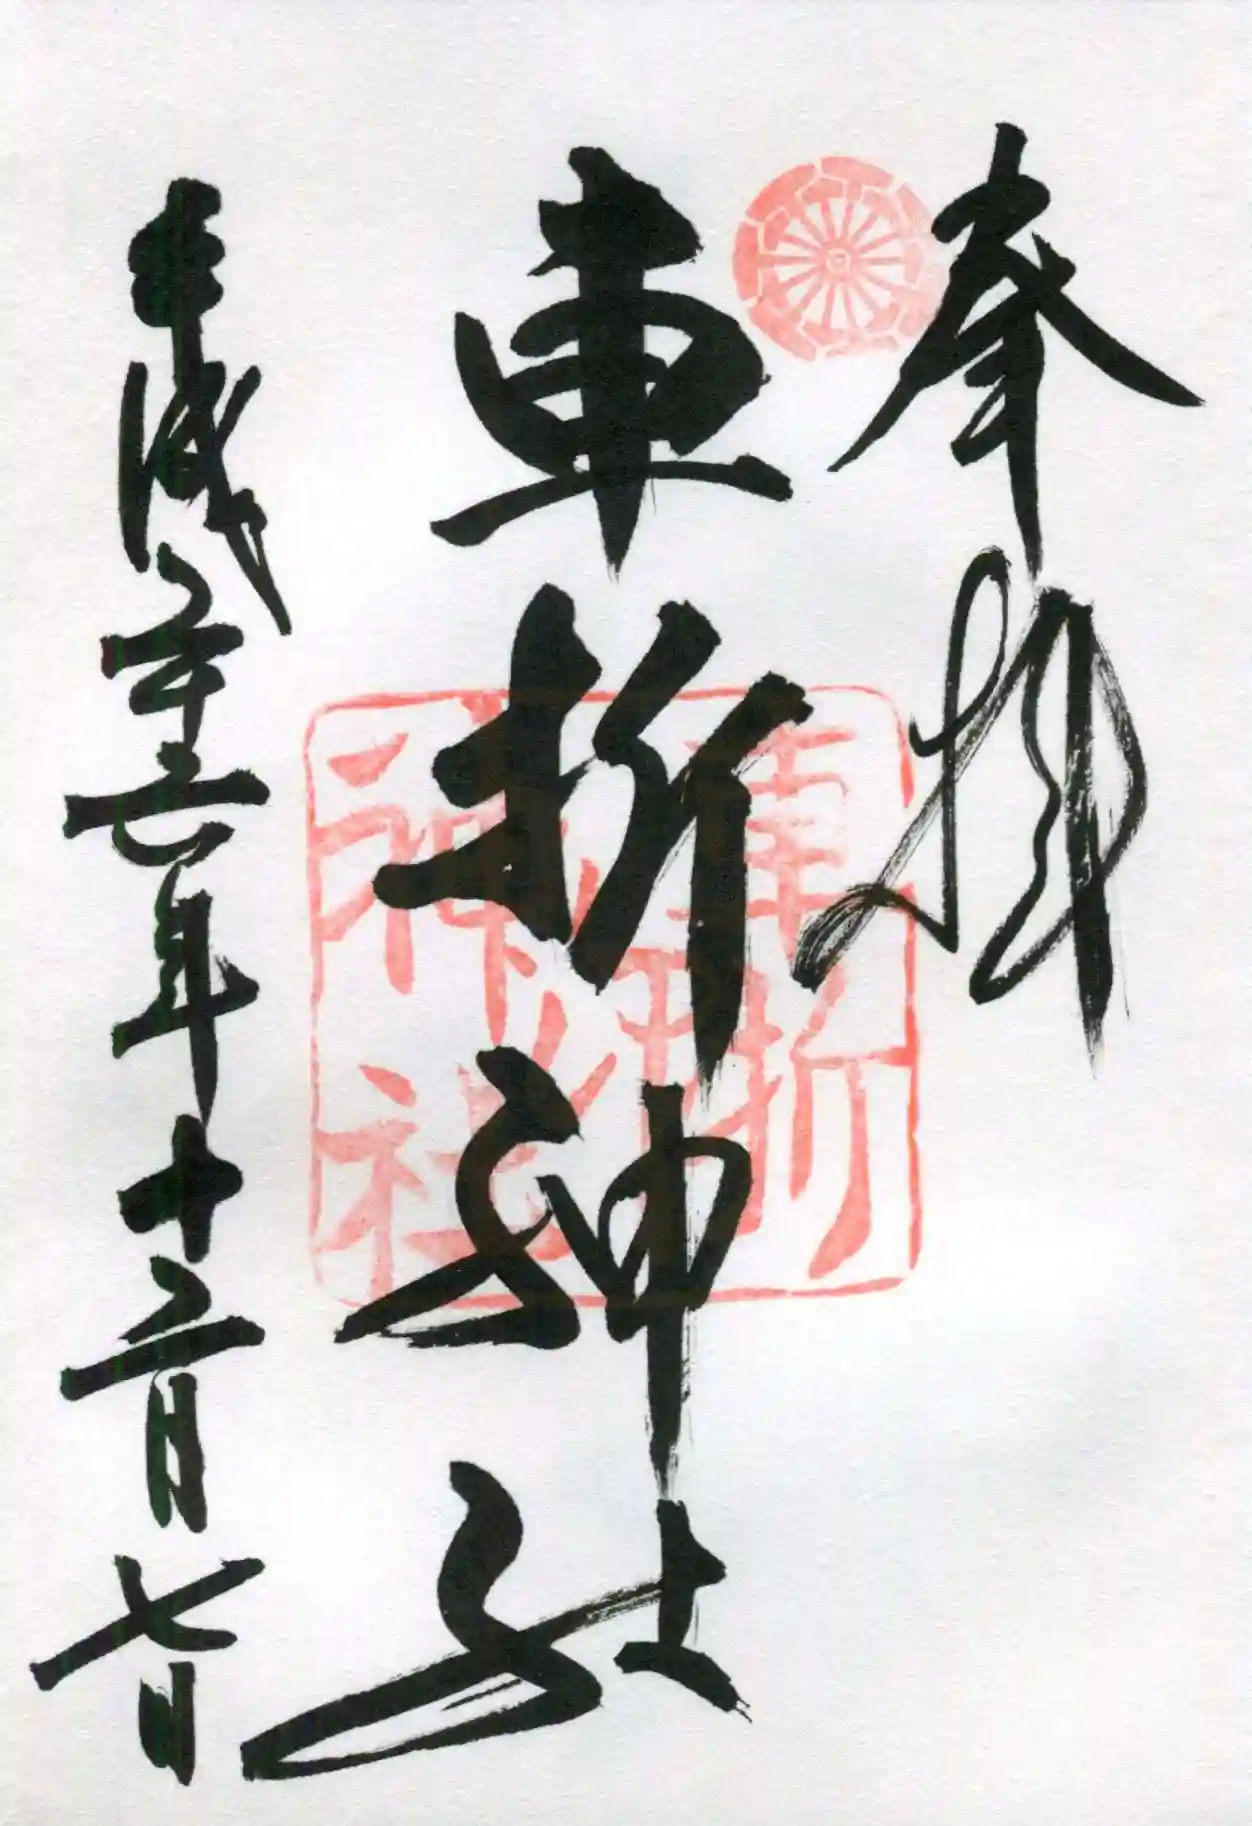 奉拝
車折神社
平成二十六年十二月七日
車折
神社